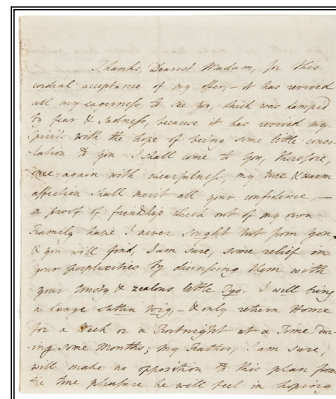 Thanks, Dearest Madam, for this
cordial acceptance of my offer, – it has revived
all my eagerness to see you, which was damped
by fear & sadness, because it has revived my
spirit with the hope of being some little conso-
lation to you. I shall come to you, therefore,
once again with chearfulness, my true & warm
affection shall merit all your confidence, –
a proof of friendship which out of my own
Family have I never sought but from you,
& you will find, I am sure, some relief in
your perplexities by discussing them with
your trusty & zealous little I will bring
a large & only return Home
for a Week or a Fortnight at a Time dur-
ing some Months; my Father, I am sure,
will make no opposition to this plan from
the true pleasure he will feel in hoping